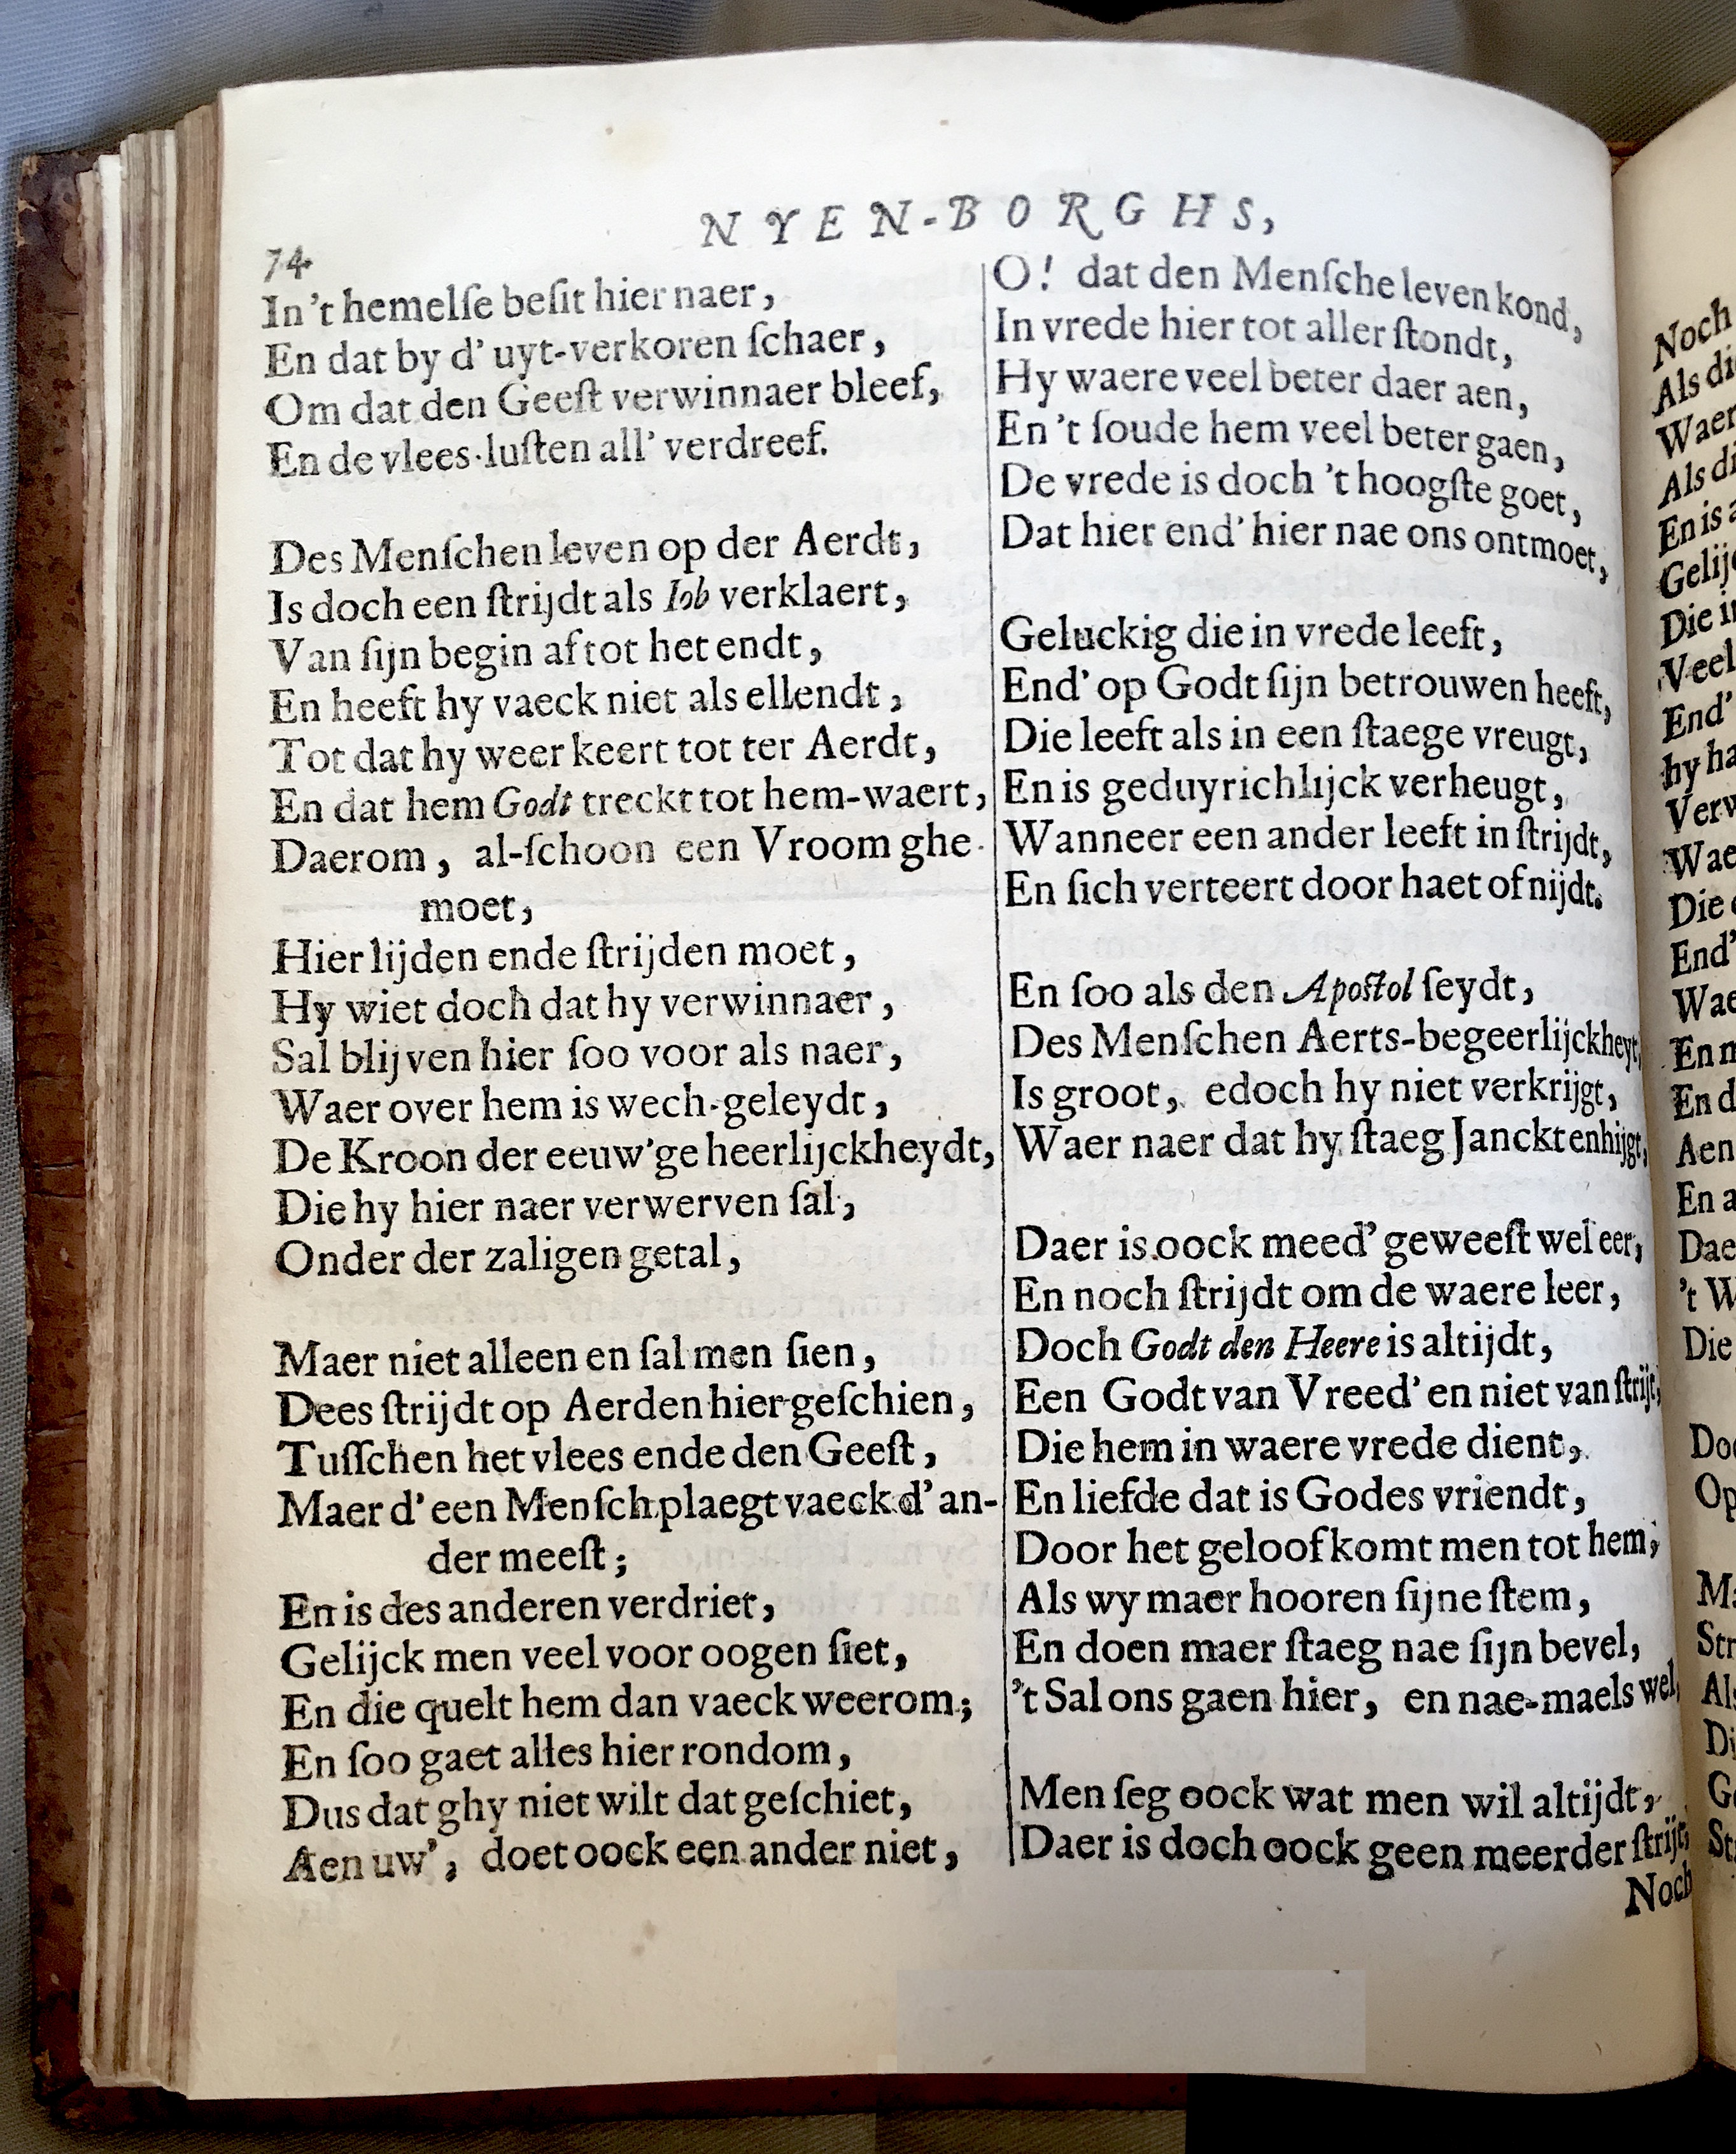 NYEN-BORGHS,
74
In't hemelſe beſit hier naer,
En dat by d' uyt-verkoren ſchaer,
Om dat den Geeſt verwinnaer bleef,
En de vlees-luſten all' verdreef.
Des Menſchen leven op der Aerdt,
Is doch een ſtrijdt als Iob verklaert,
Van ſijn begin af tot het endt,
En heeft hy vaeck niet als ellendt,
Tot dat hy weer keert tot ter Aerdt,
En dat hem Godt treckt tot hem-waert,
Daerom, al-ſchoon een Vroom ghe-
moet,
Hier lijden ende ſtrijden moet,
Hy wiet doch dat hy verwinnaer,
Sal blijven hier ſoo voor als naer,
Waer over hem is wech-geleydt,
De Kroon der eeuw'ge heerlijckheydt,
Die hy hier naer verwerven ſal,
Onder der zaligen getal,
Maer niet alleen en ſal men ſien,
Dees ſtrijdt op Aerden hier geſchien,
Tuſſchen het vlees ende den Geeſt,
Maer d' een Menſch plaegt vaeck d' an-
der meeſt;
En is des anderen verdriet,
Gelijck men veel voor oogen ſiet,
En die quelt hem dan vaeck weerom;
En ſoo gaet alles hier rondom,
Dus dat ghy niet wilt dat geſchiet,
Aen uw', doet oock een ander niet,
O! dat den Menſche leven kond,
In vrede hier tot aller ſtondt,
Hy waere veel beter daer aen,
En 't ſoude hem veel beter gaen,
De vrede is doch 't hoogſte goet,
Dat hier end' hier nae ons ontmoet,
Geluckig die in vrede leeft,
End' op Godt ſijn betrouwen heeft,
Die leeft als in een ſtaege vreugt,
En is geduyrichlijck verheugt,
Wanneer een ander leeft in ſtrijdt,
En ſich verteert door haet of nijdt.
En ſoo als den Apoſtol ſeydt,
Des Menſchen Aerts-begeerlijckheyt,
Is groot, edoch hy niet verkrijgt,
Waer naer dat hy ſtaeg Janckt en hijgt,
Daer is oock meed' geweeſt wel eer,
En noch ſtrijdt om de waere leer,
Doch Godt den Heere is altijdt,
Een Godt van Vreed' en niet van ſtrijt,
Die hem in waere vrede dient,
En liefde dat is Godes vriendt,
Door het geloof komt men tot hem,
Als wy maer hooren ſijne ſtem,
En doen maer ſtaeg nae ſijn bevel,
't Sal ons gaen hier, en nae-maels wel,
Men ſeg oock wat men wil altijdt,
Daer is doch oock geen meerder ſtrijt,
Noch
Noch
Als
Waer
Als
En is
Die
Veel
End'
hy
Die
End'
En
En
Aen
En
't
Die